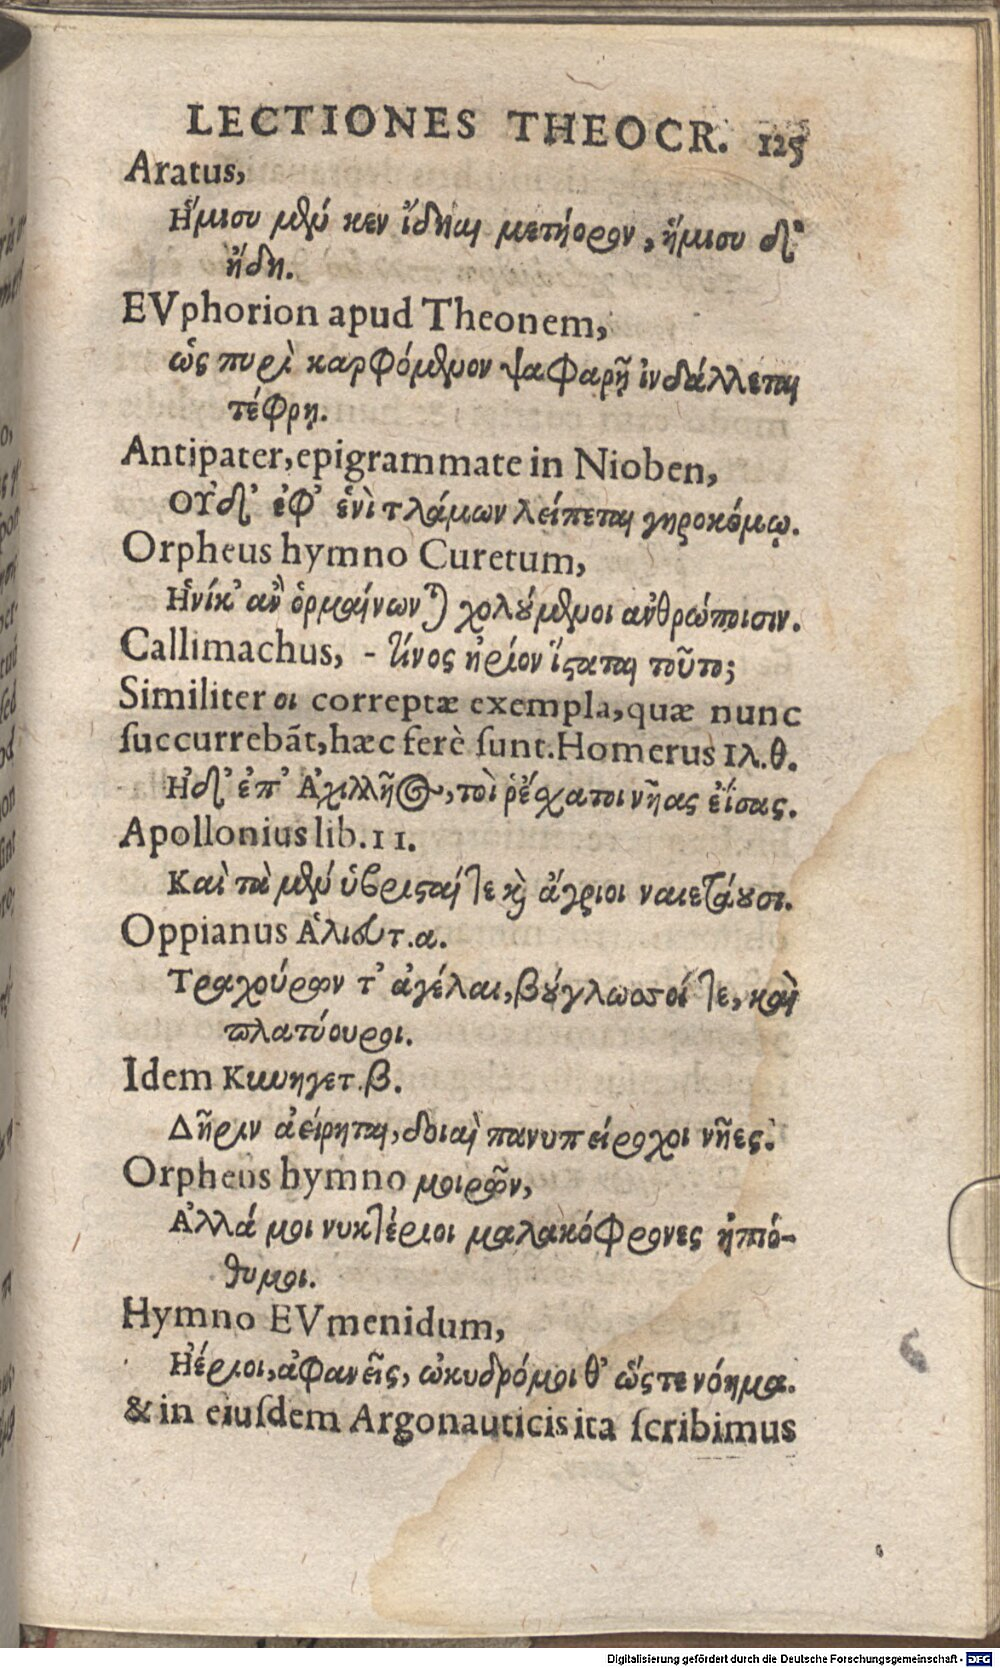 LECTIONES THEOCR. 125
Aratus,
Ἥμισυ μέν κεν ἴδηαι μετήορον, ἥμισυ δ᾽
ἤδη.
EVphorion apud Theonem,
ὡς πυρὶ καρφόμενον ψαφαρῇ ἰνδάλλεται
τέφρῃ.
Antipater, epigrammate in Nioben,
Οὐδ᾽ ἐφ᾽ ἑνὶ τλάμων λείπεται γηροκόμῳ.
Orpheus hymno Curetum,
Ἡνίκ᾽ ἂν ὁρμαίνωνται χολούμενοι ἀνθρώποισιν.
Callimachus, - τίνος ἠρίον ἵσταται τοῦτο;
Similiter οι correptæ exempla, quæ nunc
succurrebāt, hæc ferè sunt. Homerus ιλ.θ.
Ἠδ᾽ ἐπ᾽ Ἀχιλλῆος, τοὶ ῥ᾽ ἔσχατοι νῆας ἐίσας.
Apollonius lib. 11.
Καὶ τὰ μὲν ὑβρισταί τε καὶ ἄγριοι ναιετάουσι.
Oppianus Ἁλιευτ.α.
Τραχούρων τ᾽ ἀγέλαι, βούγλωσσοί τε, καὶ
πλατύουροι.
Idem Κυνηγετ.β.
Δῆριν ἀείρηται, δοιαὶ πανυπείροχοι νῆες.
Orpheus hymno μοιρῶν,
Ἀλλά μοι νυκτέριοι μαλακόφρονες ἠπιό-
θυμοι.
Hymno EVmenidum,
Ἠέριοι, ἀφανεῖς, ὠκυδρόμοι θ᾽ ὥστε νόημα.
& in eiusdem Argonauticis ita scribimus
Digitalisierung gefördert durch die Deutsche Forschungsgemeinschaft - DFG